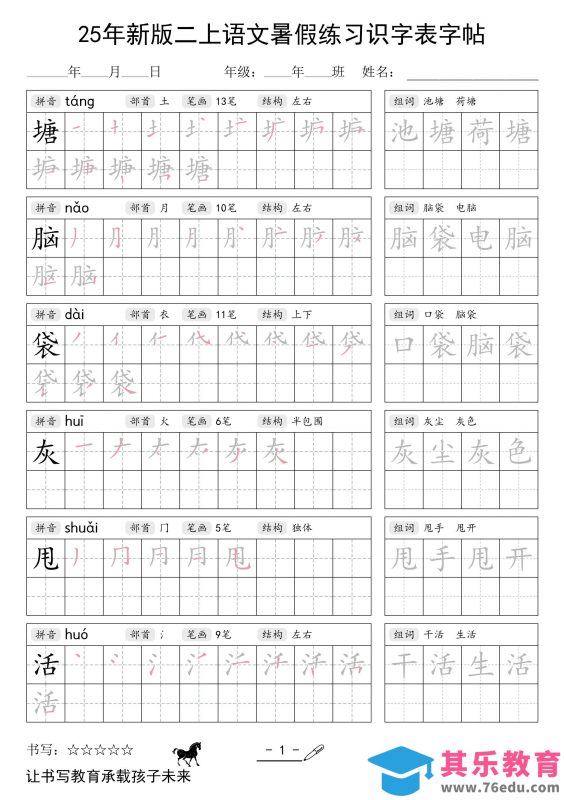 25年新版二上语文暑假练习识字表字帖
____年____月____日 年级：____年____班 姓名：____________
拼音 táng 部首 土 笔画 13笔 结构 左右 组词 池塘 荷塘
塘 池塘荷塘
塘
拼音 nǎo 部首 月 笔画 10笔 结构 左右 组词 脑袋 电脑
脑 脑袋电脑
脑
拼音 dài 部首 衣 笔画 11笔 结构 上下 组词 口袋 脑袋
袋 口袋脑袋
袋
拼音 huī 部首 火 笔画 6笔 结构 半包围 组词 灰尘 灰色
灰 灰 灰尘灰色
拼音 shuǎi 部首 冂 笔画 5笔 结构 独体 组词 甩手 甩开
甩 甩 甩手甩开
拼音 huó 部首 氵 笔画 9笔 结构 左右 组词 干活 生活
活 干活生活
活
书写：☆☆☆☆☆ - 1 -
让书写教育承载孩子未来
其乐教育
www.76edu.com